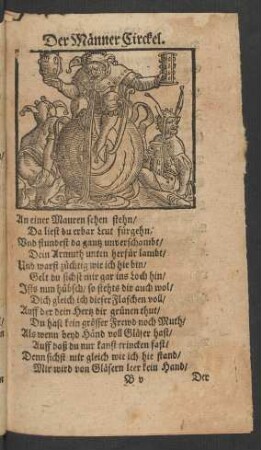 Der Männer Circkel.
An einer Mauren sehen stehn/
Da liest du erbar leut fürgehn/
Vnd stundest da gantz unverschambt/
Dein Armuth unten herfür lambt/
Und warst züchtig wie ich hie bin/
Gelt du sichst mir gar ins loch hin/
Isss nun hübsch/ so stehts dir auch wol/
Dich gleich ich dieser Flaschen voll/
Auff der dein Hertz dir grünen thut/
Du hast kein grösser Frewd noch Muth/
Als wenn beyd Händ voll Gläser hast/
Auff daß du nur kanst trincken fast/
Denn sichst mir gleich wie ich hie stand/
Mir wird von Gläsern leer kein Hand/
B v
Der